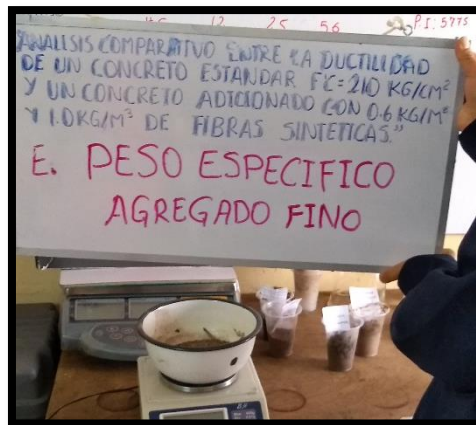 12 25 56 P I: 5775
"ANALISIS COMPARATIVO ENTRE LA DUCTILIDAD
DE UN CONCRETO ESTANDAR F'C=210 KG/CM²
Y UN CONCRETO ADICIONADO CON 0.6 KG/M³
Y 1.0KG/M³ DE FIBRAS SINTETICAS."
E. PESO ESPECIFICO
AGREGADO FINO